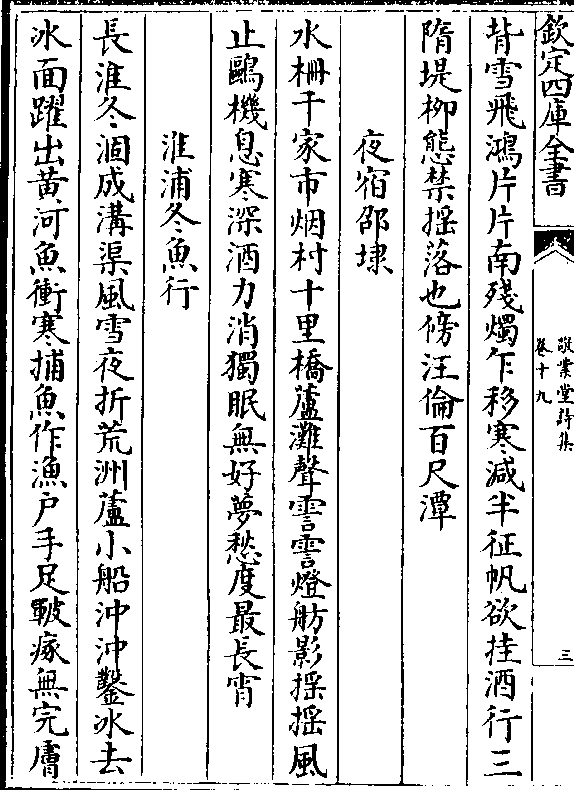 欽定四庫全書
敬業堂詩集
卷十九
三
背雪飛鴻片片南殘燭乍移寒減半征帆欲挂酒行三
隋堤柳態禁揺落也傍汪倫百尺潭
夜宿邵埭
水柵千家市烟村十里橋蘆灘聲雪雪燈舫影揺揺風
止鷗機息寒深酒力消獨眠無好夢愁度最長宵
淮浦冬魚行
長淮冬涸成溝渠風雪夜折荒洲蘆小船沖沖鑿冰去
冰面躍出黄河魚衝寒捕魚作漁户手足皸瘃無完膚